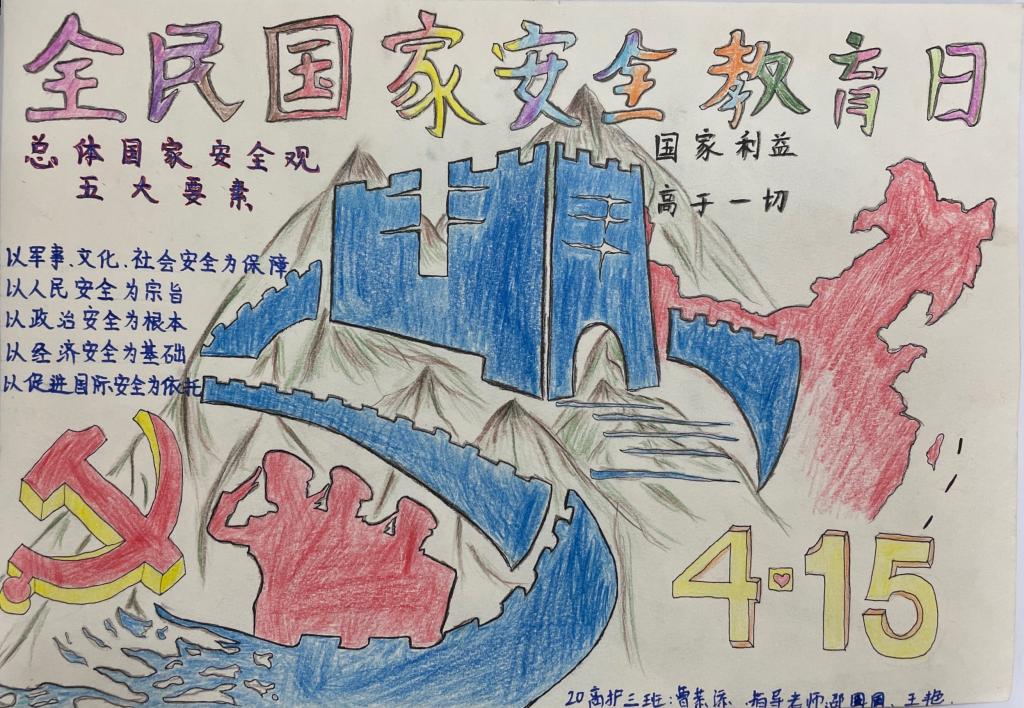 全民国家安全教育日
总体国家安全观
五大要素
国家利益
高于一切
以军事、文化、社会安全为保障
以人民安全为宗旨
以政治安全为根本
以经济安全为基础
以促进国际安全为依托
4·15
20高护三班:曹 指导老师:邵圆圆、王艳